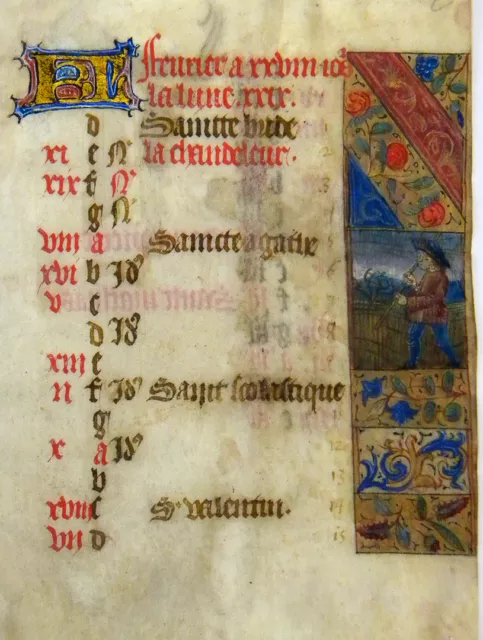 KL feurier a xxviii iors
la lune. xxix.
d Saincte bride
xi e N la chandeleur. 2
xix f N 3
g N
viii a Saincte agathe
xvi b Id 6
v c 7
d Id 8
xiii e
ii f Id Saint scolastique
g
x a Id 12
b 13
xviii c S. valentin. 14
vii d 15